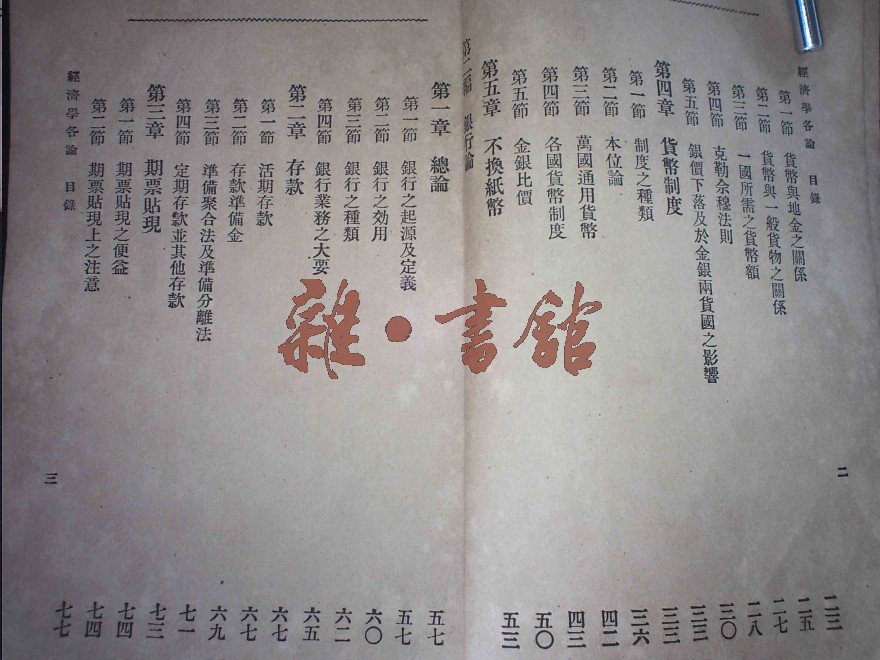 經濟學各論 目錄 二
第一節 貨幣與地金之關係 二三
第二節 貨幣與一般貨物之關係 二五
第三節 一國所需之貨幣額 二七
第四節 克勒佘穆法則 二八
第五節 銀價下落及於金銀兩貨國之影響 三〇
第四章 貨幣制度 三三
第一節 制度之種類 三三
第二節 本位論 三六
第三節 萬國通用貨幣 四二
第四節 各國貨幣制度 四三
第五節 金銀比價 五〇
第五章 不換紙幣 五三
第二編 銀行論
第一章 總論 五七
第一節 銀行之起源及定義 五七
第二節 銀行之効用 六〇
第三節 銀行之種類 六二
第四節 銀行業務之大要 六五
第二章 存款 六七
第一節 活期存款 六七
第二節 存款準備金 六九
第三節 準備聚合法及準備分離法 七一
第四節 定期存款並其他存款 七三
第三章 期票貼現 七四
第一節 期票貼現之便益 七四
第二節 期票貼現上之注意 七七
經濟學各論 目錄 三
雜·書館